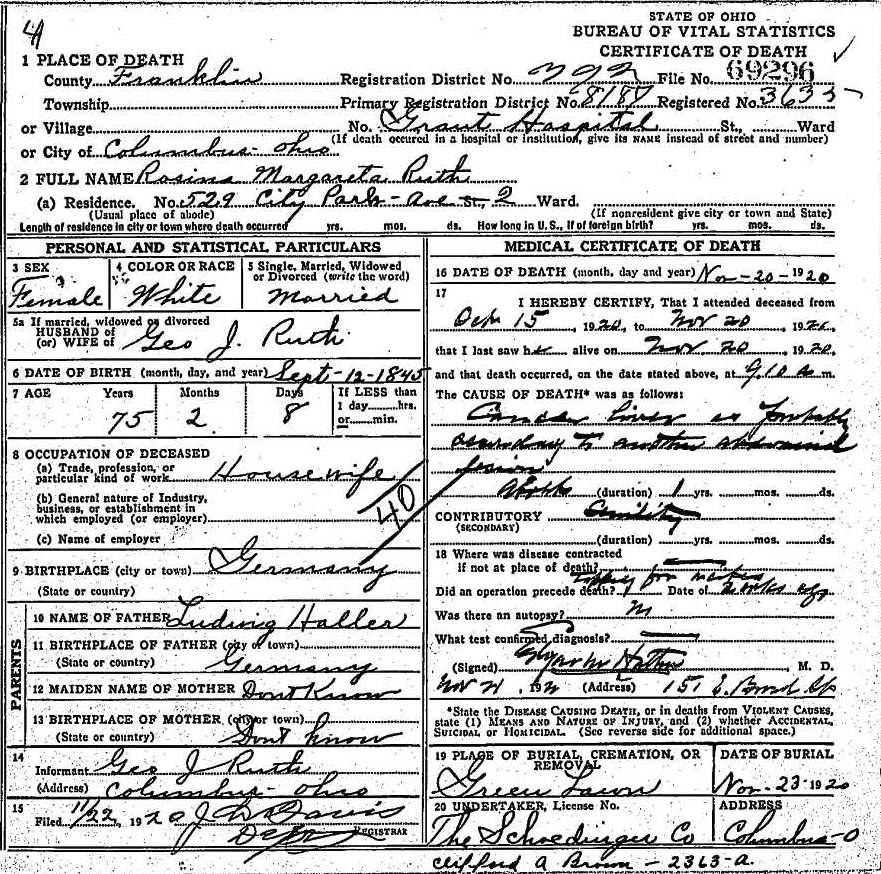 4
STATE OF OHIO
BUREAU OF VITAL STATISTICS
CERTIFICATE OF DEATH
1 PLACE OF DEATH
County Franklin Registration District No. 392 File No. 69296
Township Primary Registration District No. 8187 Registered No. 3633
or Village No. Grant Hospital St., Ward
or City of Columbus Ohio (If death occured in a hospital or institution, give its NAME instead of street and number)
2 FULL NAME Rosina Margareta Ruth
(a) Residence. No. 529 City Park Ave St. 2 Ward.
(Usual place of abode) (If nonresident give city or town and State)
Length of residence in city or town where death occurred yrs. mos. ds. How long in U.S., If of foreign birth? yrs. mos. ds.
PERSONAL AND STATISTICAL PARTICULARS
3 SEX 4 COLOR OR RACE 5 Single, Married, Widowed
or Divorced (write the word)
Female White Married
5a If married, widowed or divorced
HUSBAND of
(or) WIFE of Geo J. Ruth
6 DATE OF BIRTH (month, day, and year) Sept-12-1845
7 AGE Years Months Days If LESS than
1 day hrs.
75 2 8 or min.
8 OCCUPATION OF DECEASED
(a) Trade, profession, or
particular kind of work Housewife
(b) General nature of Industry,
business, or establishment in
which employed (or employer)
40
(c) Name of employer
9 BIRTHPLACE (city or town) Germany
(State or country)
PARENTS
10 NAME OF FATHER Ludwig Haller
11 BIRTHPLACE OF FATHER (city or town)
(State or country) Germany
12 MAIDEN NAME OF MOTHER Dont Know
13 BIRTHPLACE OF MOTHER (city or town)
(State or country) Dont know
14
Informant Geo J Ruth
(Address) Columbus Ohio
15
Filed 11/22, 1920 Davis
REGISTRAR
MEDICAL CERTIFICATE OF DEATH
16 DATE OF DEATH (month, day and year) Nov-20-1920
17
I HEREBY CERTIFY, That I attended deceased from
15, 1920, to Nov 20, 192
that I last saw her alive on Nov 20, 1920,
and that death occurred, on the date stated above, at 9.10 a m.
The CAUSE OF DEATH* was as follows:
Cancer liver probably
secondary to another abdominal
lesion
about (duration) 1 yrs. mos. ds.
CONTRIBUTORY Senility
(SECONDARY)
(duration) yrs. mos. ds.
18 Where was disease contracted
if not at place of death?
Did an operation precede death? Date of
Was there an autopsy?
What test confirmed diagnosis?
(Signed) M. D.
Nov 21, 192 (Address) 151 E. Broad St
*State the DISEASE CAUSING DEATH, or in deaths from VIOLENT CAUSES,
state (1) MEANS AND NATURE OF INJURY, and (2) whether ACCIDENTAL,
SUICIDAL or HOMICIDAL. (See reverse side for additional space.)
19 PLACE OF BURIAL, CREMATION, OR
REMOVAL DATE OF BURIAL
Green Lawn Nov-23-1920
20 UNDERTAKER, License No. ADDRESS
The Schoedinger Co Columbus-O
Clifford A Brown - 2363-A.